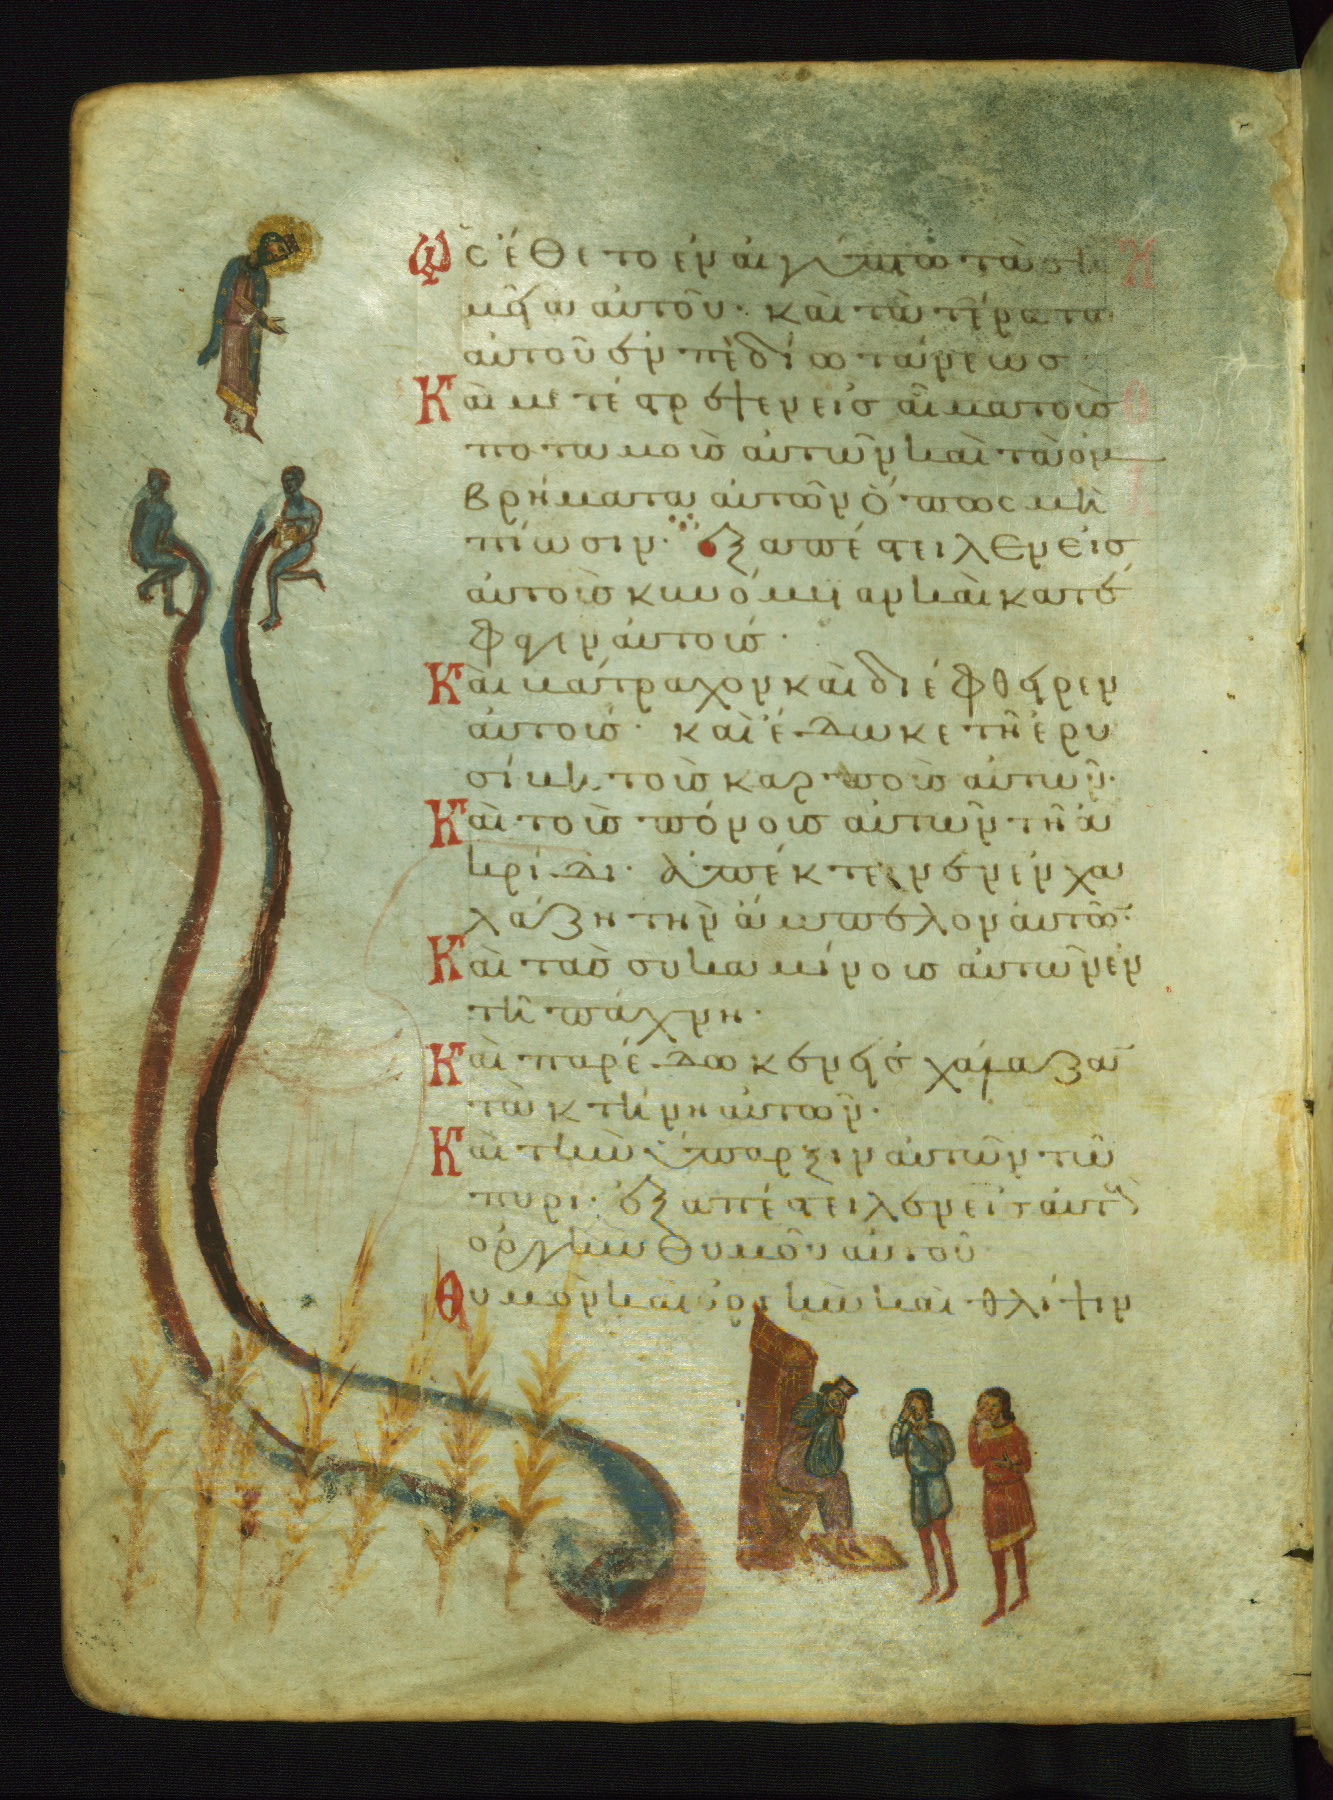 Ὡς ἔθετο ἐν αἰγύπτω τὰ ση
μεῖα αὐτοῦ· καὶ τὰ τέρατα
αὐτοῦ ἐν πεδίω τάνεως
Καὶ μετέστρεψεν εἰς αἷμα τοὺς
ποταμοὺς αὐτῶν καὶ τὰ ὀμ
βρήματα αὐτῶν ὅπως μὴ
πίωσιν· ἐξαπέστειλεν εἰς
αὐτοὺς κυνόμυιαν καὶ κατέ
φαγεν αὐτούς·
Καὶ βάτραχον καὶ διέφθειρεν
αὐτούς· καὶ ἔδωκε τῆ ἐρυ
σίβη τοὺς καρποὺς αὐτῶν·
Καὶ τοὺς πόνους αὐτῶν τῆ ἀ
κρίδι· ἀπέκτεινεν ἐν χα
λάζη τὴν ἄμπελον αὐτῶν·
Καὶ τὰς συκαμίνους αὐτῶν ἐν
τῆ πάχνη·
Καὶ παρέδωκεν εἰς χάλαζαν
τὰ κτήνη αὐτῶν·
Καὶ τὴν ὕπαρξιν αὐτῶν τῶ
πυρί· ἐξαπέστειλεν εἰς αὐτοὺς
ὀργὴν θυμοῦ αὐτοῦ
Θυμὸν καὶ ὀργὴν καὶ θλίψιν